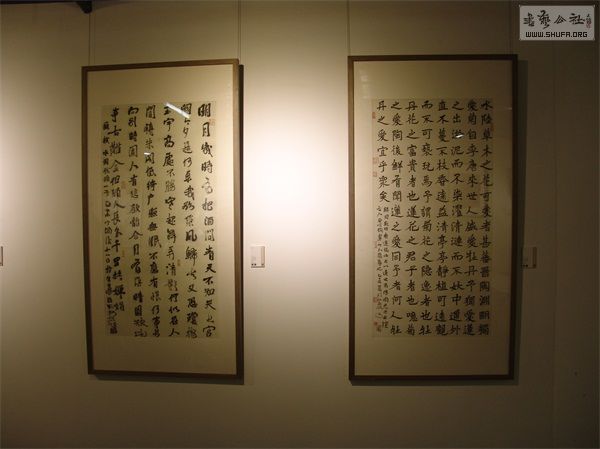 書藝公社
WWW.SHUFA.ORG
水陸草木之花可愛者甚蕃晉陶淵明獨
愛菊自李唐來世人盛愛牡丹予獨愛蓮
之出淤泥而不染濯清漣而不妖中通外
直不蔓不枝香遠益清亭亭靜植可遠觀
而不可褻玩焉予謂菊花之隱逸者也牡
丹花之富貴者也蓮花之君子者也噫菊
之愛陶後鮮有聞蓮之愛同予者何人牡
丹之愛宜乎眾矣
明月幾時有把酒問青天不知天上宮
闕今夕是何年我欲乘風歸去又恐瓊樓
玉宇高處不勝寒起舞弄清影何似在人
間轉朱閣低綺戶照無眠不應有恨何事長
向別時圓人有悲歡離合月有陰晴圓缺此
事古難全但願人長久千里共嬋娟